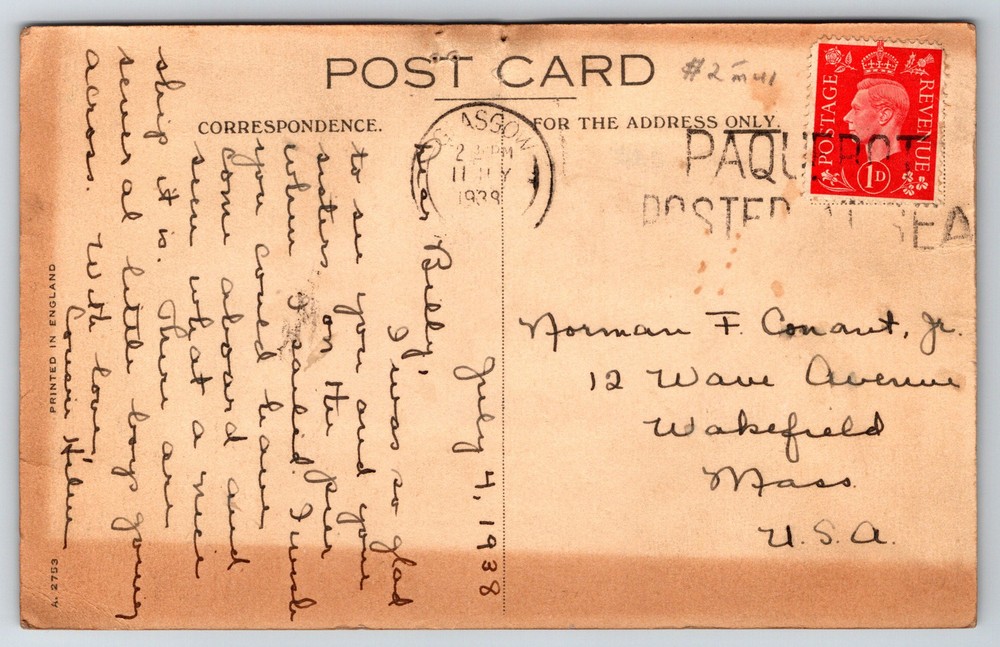 POST CARD
#2
CORRESPONDENCE.
FOR THE ADDRESS ONLY.
GLASGOW
PM
11 JLY
1938
PAQUEBOT
POSTED AT SEA
POSTAGE
REVENUE
1D
July 4, 1938
Dear Billy,
I was so glad
to se you and your
sisters on the pier
when I sailed. I wish
you could have
come aboard and
seen what a nice
ship it is. There are
several little boys going
across. With love,
Cousin Helen
Norman F. Conant, Jr.
12 Wave Avenue
Wakefield
Mass.
U.S.A.
PRINTED IN ENGLAND
A. 2753